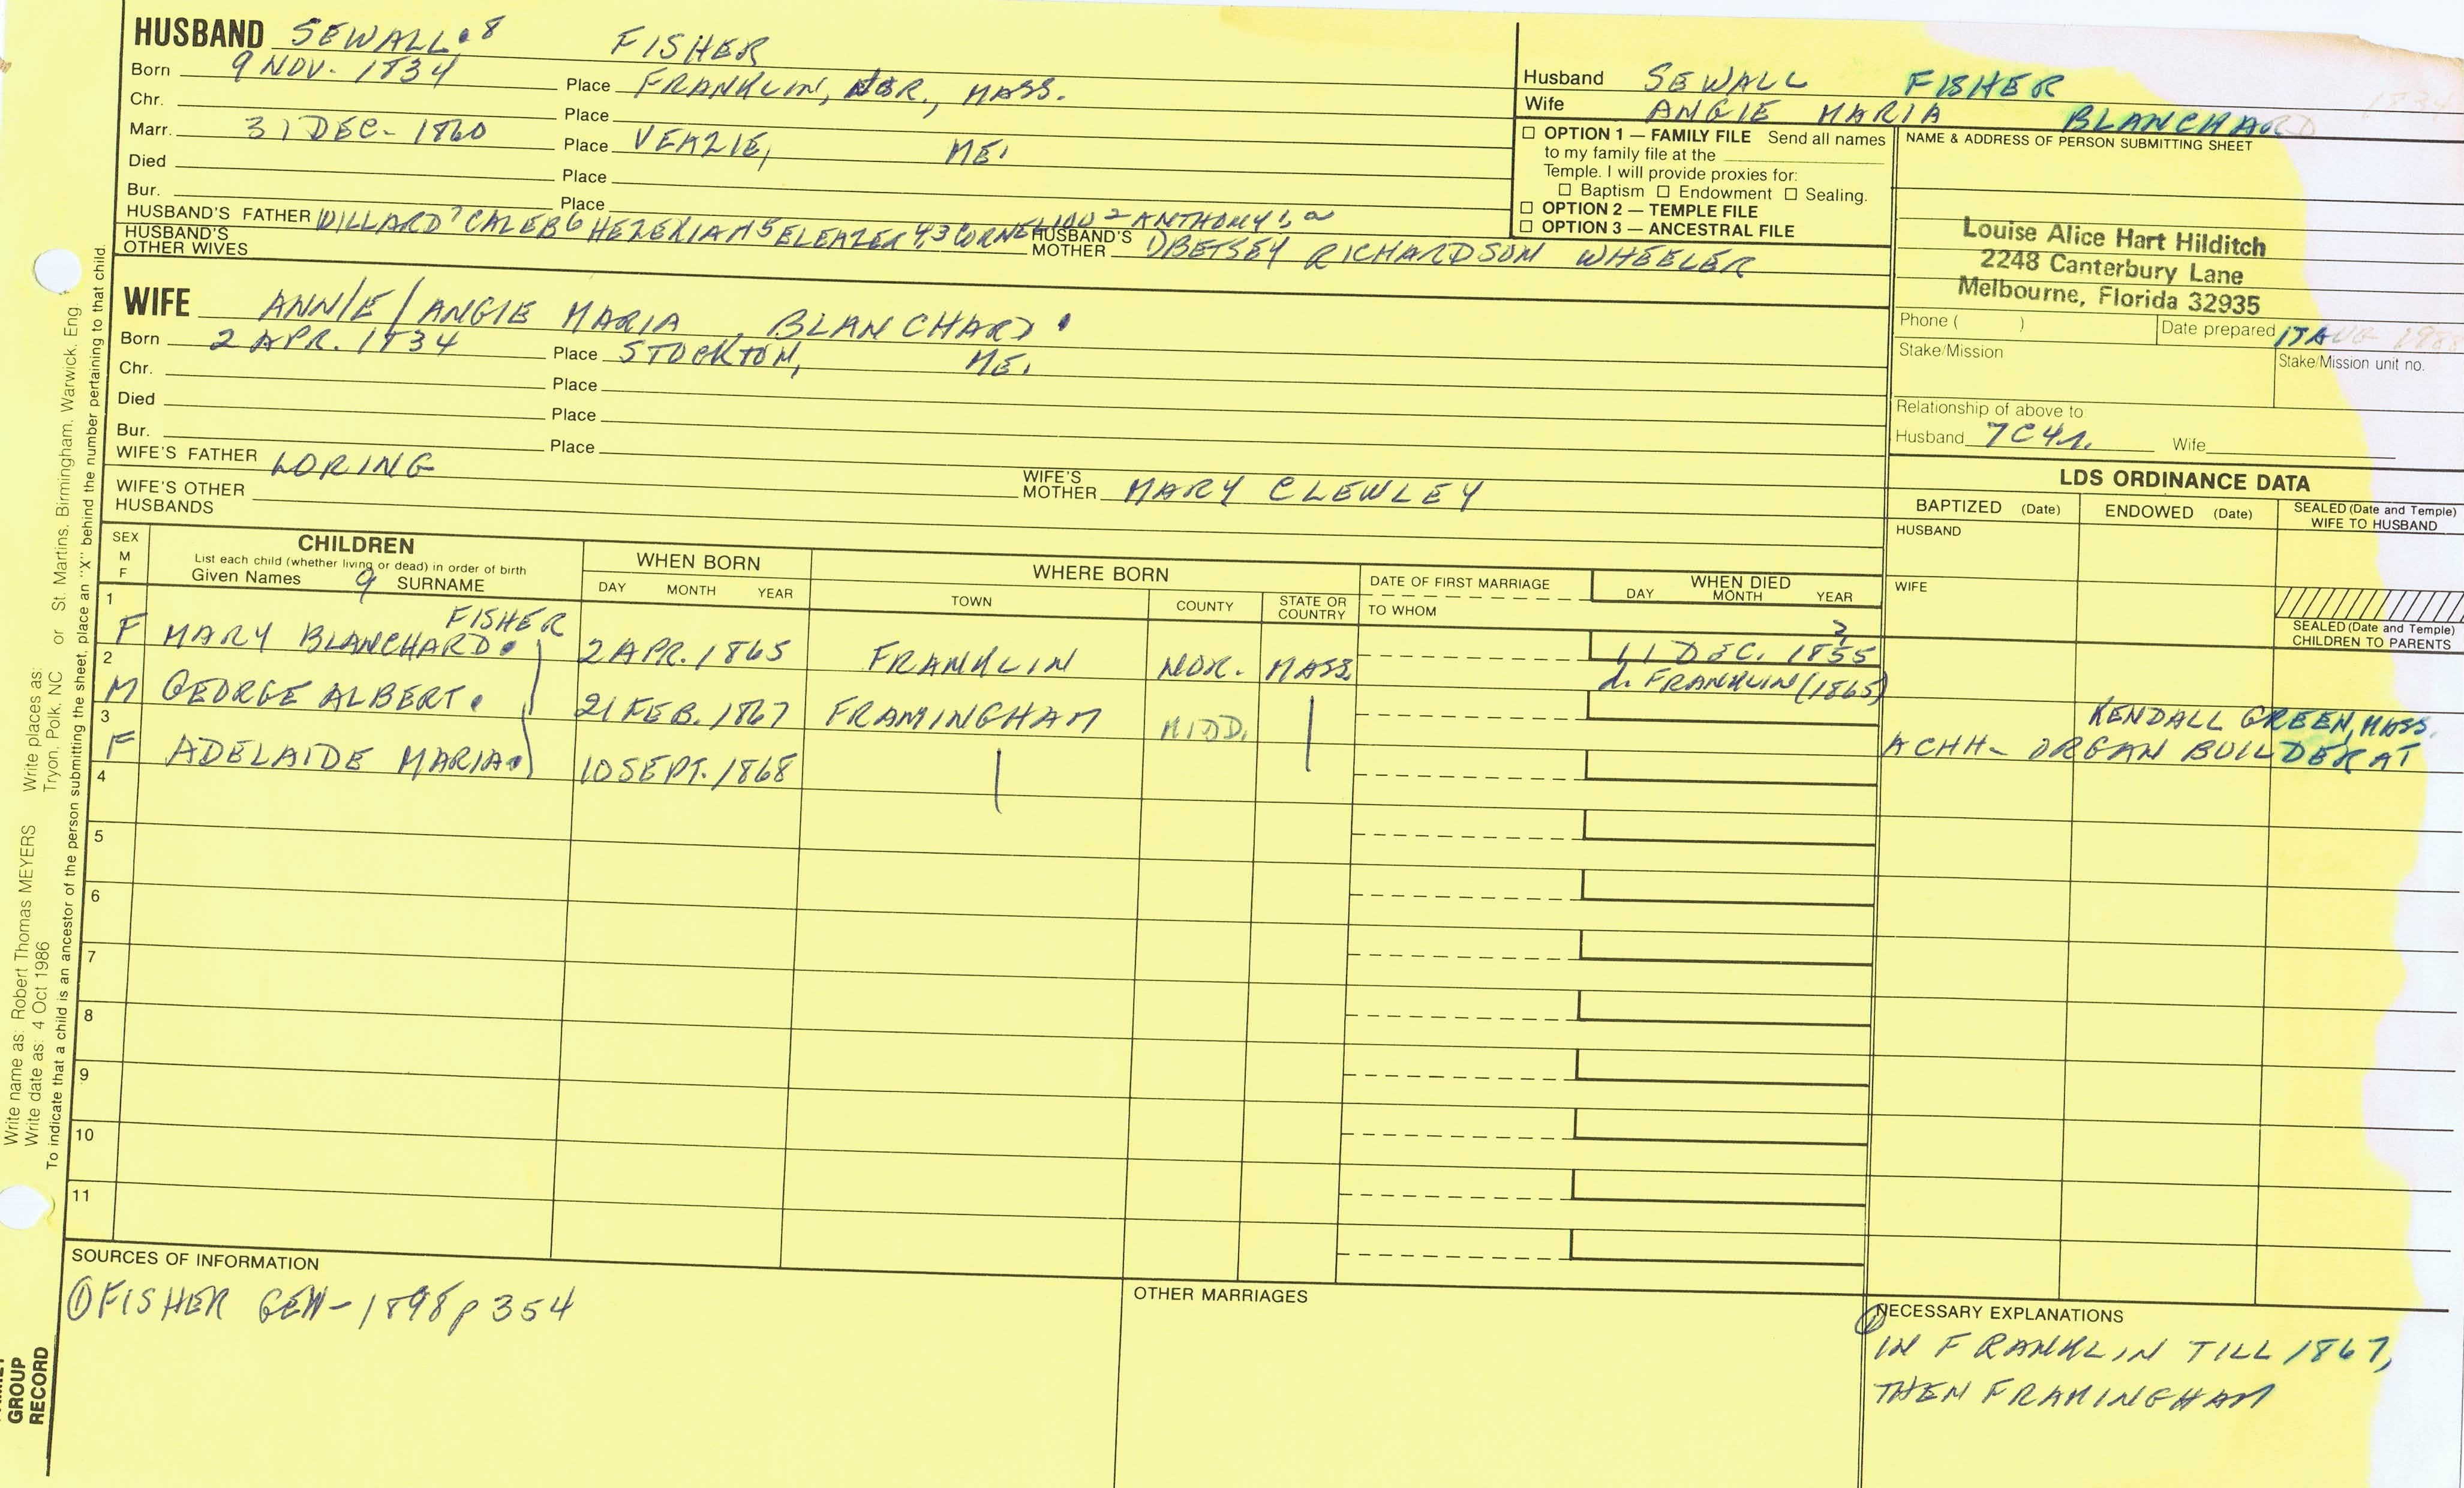 HUSBAND SEWALL.8 FISHER
Born 9 NOV. 1834 Place FRANKLIN, NOR., MASS.
Chr. Place
Marr. 31 DEC. 1860 Place VEAZIE, ME.
Died Place
Bur. Place
HUSBAND'S FATHER WILLARD 7 CALEB 6 HEZEKIAH 5 ELEAZER 4,3 CORNELIUS 2 ANTHONY 1,
HUSBAND'S OTHER WIVES HUSBAND'S MOTHER BETSEY RICHARDSON WHEELER
WIFE ANNIE/ANGIE MARIA BLANCHARD.
Born 2 APR. 1834 Place STOCKTON, ME.
Chr. Place
Died Place
Bur. Place
WIFE'S FATHER LORING WIFE'S MOTHER MARY CLEWLEY
WIFE'S OTHER HUSBANDS
Husband SEWALL FISHER
Wife ANGIE MARIA BLANCHARD
☐ OPTION 1 — FAMILY FILE Send all names
to my family file at the
Temple. I will provide proxies for:
☐ Baptism ☐ Endowment ☐ Sealing.
☐ OPTION 2 — TEMPLE FILE
☐ OPTION 3 — ANCESTRAL FILE
NAME & ADDRESS OF PERSON SUBMITTING SHEET
Louise Alice Hart Hilditch
2248 Canterbury Lane
Melbourne, Florida 32935
Phone ( ) Date prepared AUG 1988
Stake/Mission Stake/Mission unit no.
Relationship of above to
Husband 7C4r. Wife
LDS ORDINANCE DATA
BAPTIZED (Date) ENDOWED (Date) SEALED (Date and Temple) WIFE TO HUSBAND
HUSBAND
WIFE
SEALED (Date and Temple) CHILDREN TO PARENTS
SEX M F
CHILDREN
List each child (whether living or dead) in order of birth
Given Names 9 SURNAME
WHEN BORN
DAY MONTH YEAR
WHERE BORN
TOWN COUNTY STATE OR COUNTRY
DATE OF FIRST MARRIAGE
TO WHOM
WHEN DIED
DAY MONTH YEAR
1 F MARY BLANCHARD. FISHER 2 APR. 1865 FRANKLIN NOR. MASS. 11 DEC. 1855 ?
d. FRANKLIN (1865)
2 M GEORGE ALBERT. 21 FEB. 1867 FRAMINGHAM MIDD.
KENDALL GREEN, MASS.
3 F ADELAIDE MARIA. 10 SEPT. 1868
ACHH- ORGAN BUILDER AT
4
5
6
7
8
9
10
11
SOURCES OF INFORMATION
① FISHER GEN-1898 p 354
OTHER MARRIAGES
① NECESSARY EXPLANATIONS
IN FRANKLIN TILL 1867,
THEN FRAMINGHAM
Write name as: Robert Thomas MEYERS Write places as: Tryon, Polk, NC or St. Martins, Birmingham, Warwick, Eng.
Write date as: 4 Oct 1986
To indicate that a child is an ancestor of the person submitting the sheet, place an "X" behind the number pertaining to that child.
GROUP
RECORD